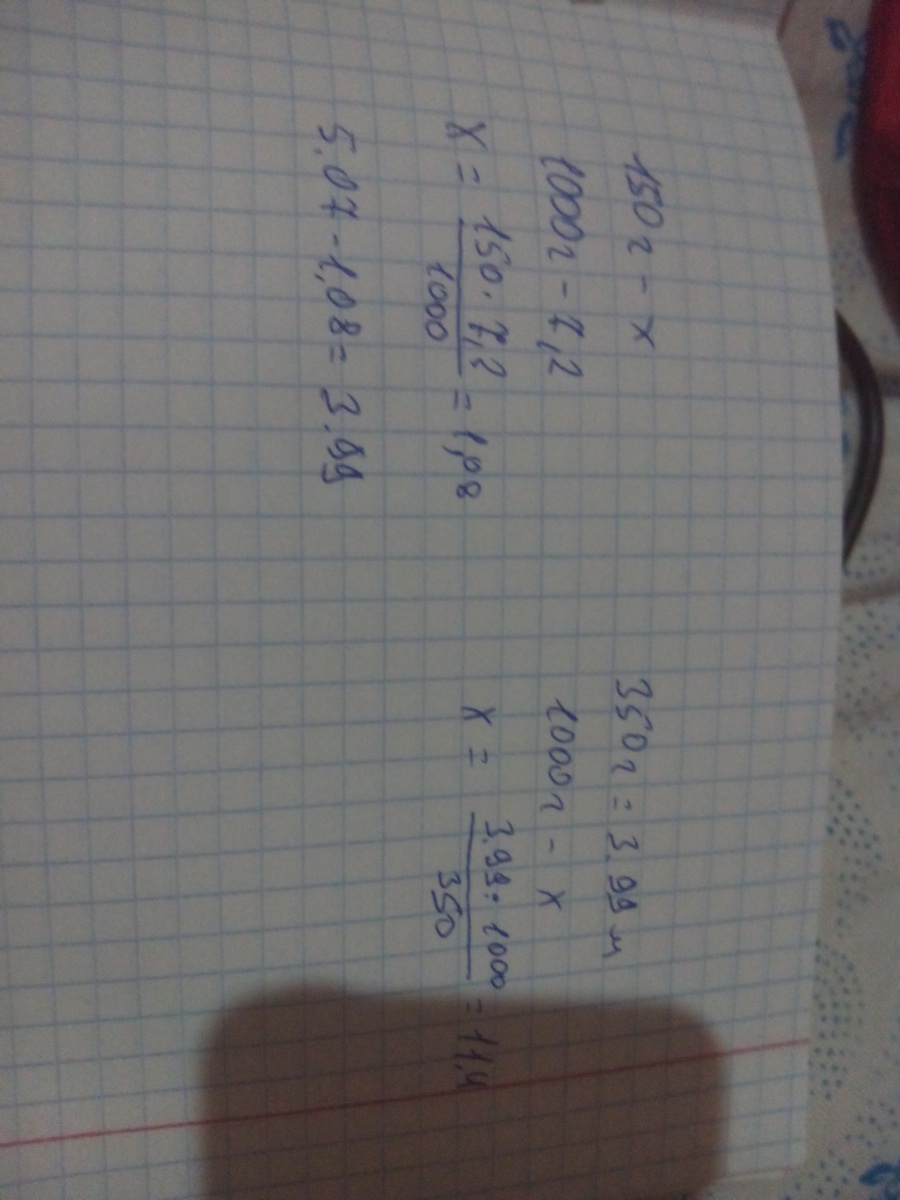 150г - x
1000г - 7,2
x = 150 · 7,2 / 1000 = 1,08
5.07 - 1,08 = 3.99
350г = 3.99 м
1000г - x
x = 3.99 · 1000 / 350 = 11,4